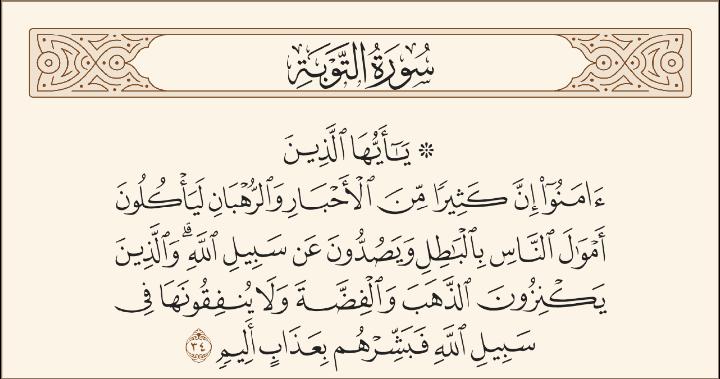 سُورَةُ التَّوْبَةِ
۞ يَـٰٓأَيُّهَا ٱلَّذِينَ
ءَامَنُوٓا۟ إِنَّ كَثِيرًا مِّنَ ٱلْأَحْبَارِ وَٱلرُّهْبَانِ لَيَأْكُلُونَ
أَمْوَٰلَ ٱلنَّاسِ بِٱلْبَـٰطِلِ وَيَصُدُّونَ عَن سَبِيلِ ٱللَّهِ ۗ وَٱلَّذِينَ
يَكْنِزُونَ ٱلذَّهَبَ وَٱلْفِضَّةَ وَلَا يُنفِقُونَهَا فِى
سَبِيلِ ٱللَّهِ فَبَشِّرْهُم بِعَذَابٍ أَلِيمٍ ٣٤